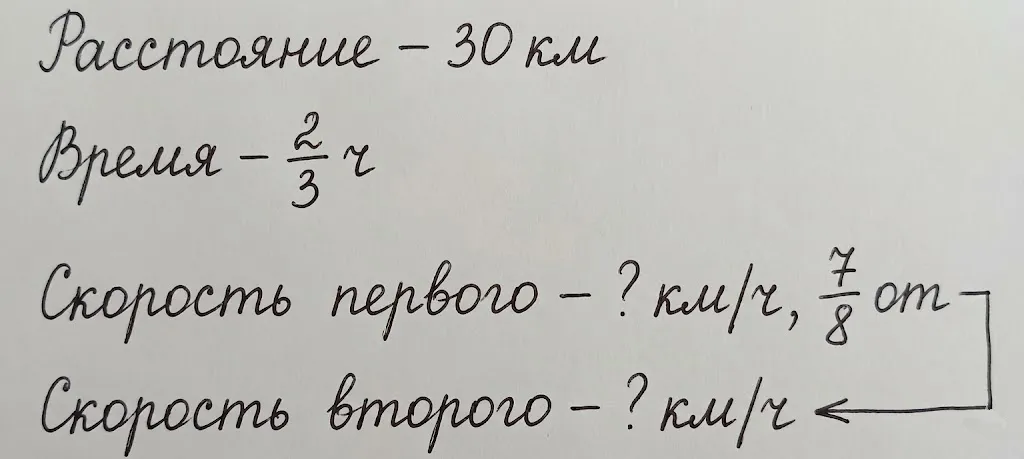 Расстояние – 30 км
Время – 2/3 ч
Скорость первого – ? км/ч, 7/8 от
Скорость второго – ? км/ч